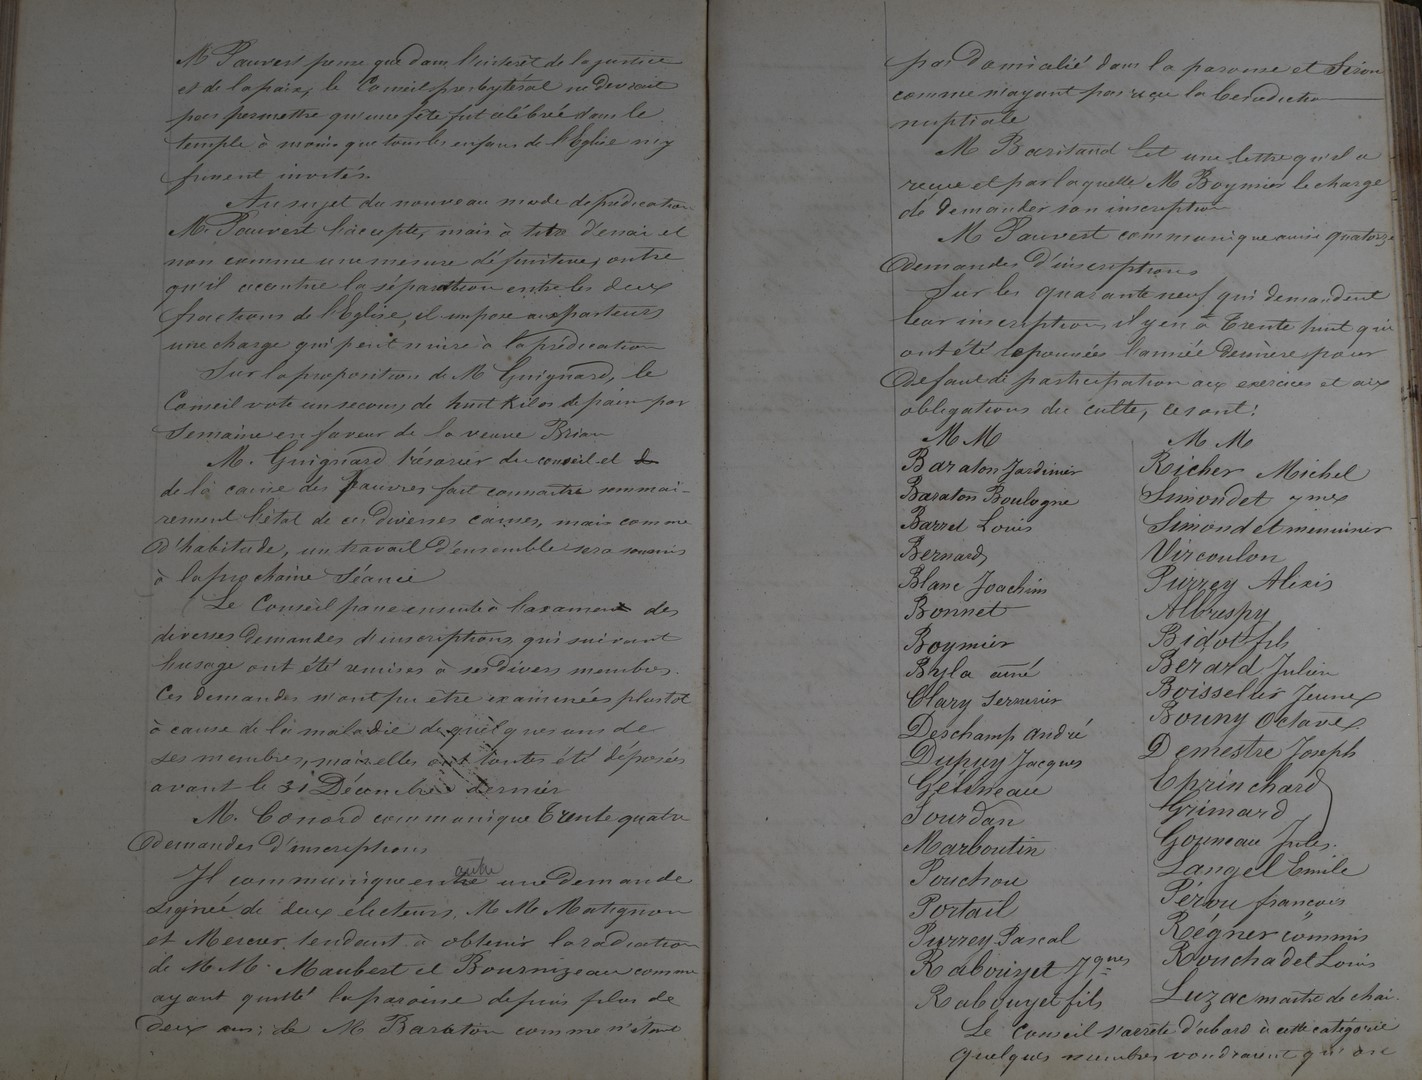 M Pauvert pense que dans l'intérêt de la justice
et de la paix, le Conseil presbytéral ne devrait
pas permettre qu'une fête fut célébrée dans le
temple à moins que tous les enfans de l'Eglise n'y
fussent invités.
Au sujet du nouveau mode de prédication
M. Pauvert l'accepte, mais à titre d'essai et
non comme une mesure définitive, outre
qu'il accentue la séparation entre les deux
fractions de l'Eglise, il impose aux pasteurs
une charge qui peut nuire à la prédication
Sur la proposition de M Guignard, le
Conseil vote un secours de huit kilos de pain par
semaine en faveur de la veuve Brian
M. Guignard trésorier du conseil et
de la caisse des pauvres fait connaitre sommai-
rement l'état de ces diverses caisses, mais comme
d'habitude, un travail d'ensemble sera soumis
à la prochaine séance
Le Conseil passe ensuite à l'examen des
diverses demandes d'inscriptions qui suivant
l'usage ont été remises à ses divers membres.
Ces demandes n'ont pu etre examinées plustot
à cause de la maladie de quelques uns de
ses membres, mais elles ont toutes été déposées
avant le 31 Décembre dernier
M. Conord communique Trente quatre
demandes d'inscriptions
Il communique en outre une demande
signée de deux électeurs, M M Matignon
et Mercier, tendant à obtenir la radiation
de M M. Maubert et Bournizeau comme
ayant quitté la paroisse depuis plus de
deux ans; de M Barаton comme n'étant
pas domicilié dans la paroisse et
comme n'ayant pas reçu la bénédiction
nuptiale
M Baritaud lit une lettre qu'il a
reçue et par laquelle M Boymier le charge
de demander son inscription
M Pauvert communique aussi quatorze
demandes d'inscriptions
Sur les quarante neuf qui demandent
leur inscription, il y en a Trente huit qui
ont été repoussées l'année dernière pour
défaut de participation aux exercices et aux
obligations du culte, ce sont:
M M
Baraton Jardinier
Baraton Boulogne
Barret Louis
Bernard
Blanc Joachim
Bonnet
Boymier
Byla ainé
Clary serrurier
Deschamp André
Dupuy Jacques
Gélineau
Jourdan
Marboutin
Pouchou
Portail
Puzzey Pascal
Rabouyet Jques
Rabouyet fils
M M
Richer Michel
Simondet
Simondet menuisier
Vircoulon
Puzzey Alexis
Albrespy
Bidot fils
Berard Julien
Boisselier Jeune
Bouny Octave
Demestre Joseph
Eprinchard
Grimard
Gouneau Jules.
Langel Emile
Pérou françois
Régner commis
Rouchadet Louis
Luzac maitre de chai.
Le Conseil s'arrête d'abord à cette catégorie
Quelques membres voudraient qu'on